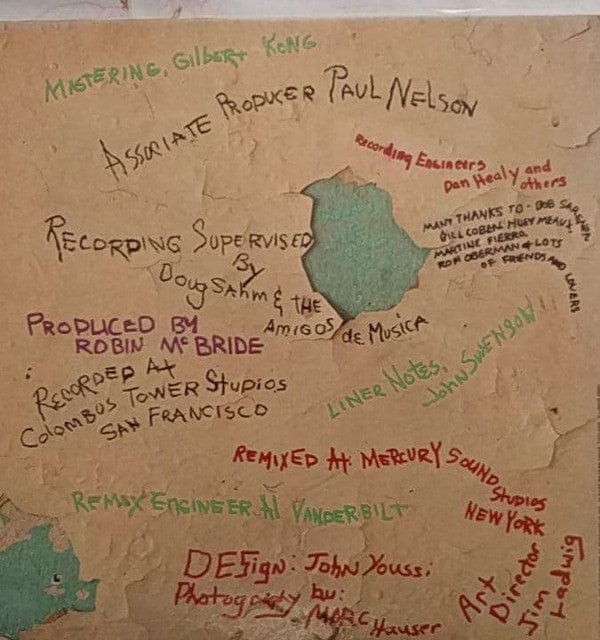 MASTERING, GILBERT KONG
ASSOCIATE PRODUCER PAUL NELSON
Recording Engineers
Dan Healy and
others
MANY THANKS TO - BOB SARENPA
BILL COBEN, HUEY MEAUX
MARTINE FIERRO
RON OBERMAN & LOTS
OF FRIENDS AND LOVERS
RECORDING SUPERVISED
By
Doug SAHM & THE
AMIGOS de MUSICA
PRODUCED BY
ROBIN McBRIDE
RECORDED At
Colombus TOWER StudioS
SAN FRANCISCO
LINER NOTES,
JOHN SWENSON
REMIXED At MERCURY SOUND
StudioS
NEW YORK
REMIX ENGINEER Al VANDERBILT
DESign: JOHN YOUSSi
Photography by:
MARC Hauser
Art
Director
Jim
Ladwig